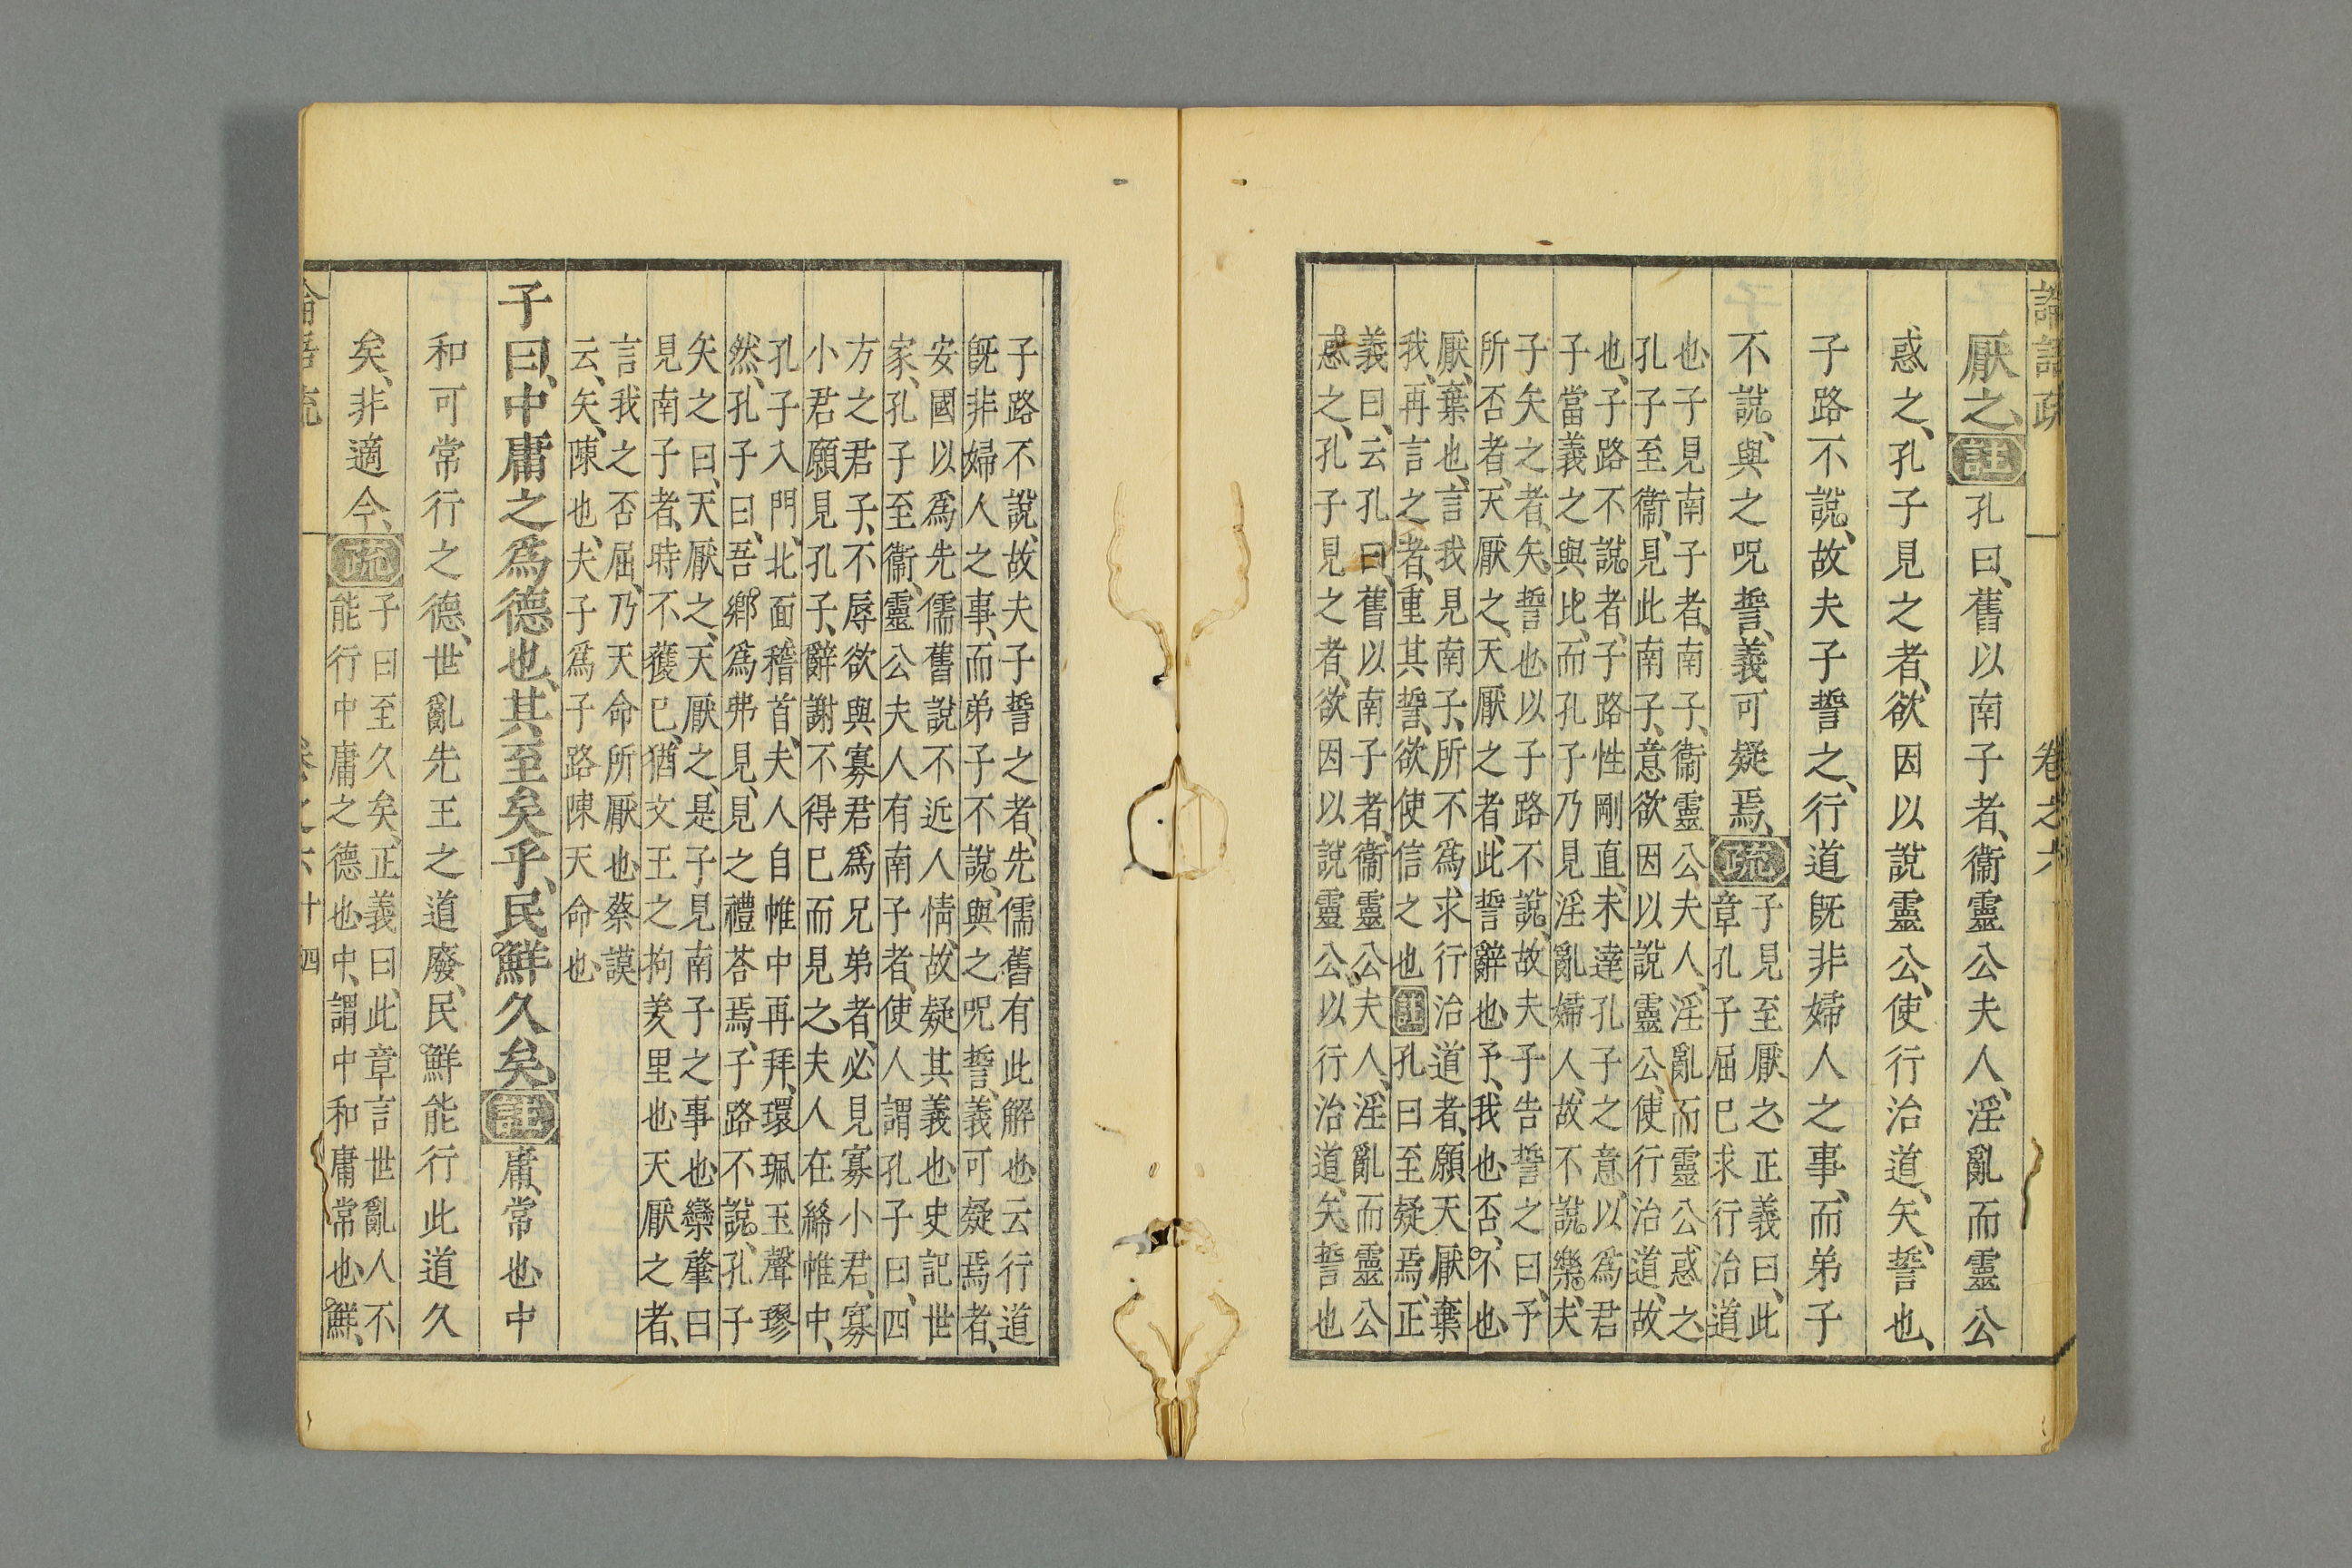 論語疏 卷之六
厭之、註孔曰、舊以南子者、衞靈公夫人、淫亂而靈公
惑之、孔子見之者、欲因以說靈公、使行治道、矢、誓也、
子路不說、故夫子誓之、行道旣非婦人之事、而弟子
不說、與之呪誓、義可疑焉、疏
子見至厭之、正義曰、此
章孔子屈己求行治道
也、子見南子者、南子、衞靈公夫人、淫亂而靈公惑之、
孔子至衞、見此南子、意欲因以說靈公、使行治道、故
也、子路不說者、子路性剛直、未達孔子之意、以爲君
子當義之與比、而孔子乃見淫亂婦人、故不說樂、夫
子矢之者、矢、誓也、以子路不說、故夫子告誓之曰、予
所否者、天厭之、天厭之者、此誓辭也、予、我也、否、不也、
厭、棄也、言我見南子、所不爲求行治道者、願天厭棄
我、再言之者、重其誓、欲使信之也註孔曰至疑焉、正
義曰、云孔曰、舊以南子者、衞靈公夫人、淫亂而靈公
惑之、孔子見之者、欲因以說靈公、以行治道、矢、誓也
子路不說、故夫子誓之者、先儒舊有此解也、云行道
旣非婦人之事、而弟子不說、與之呪誓、義可疑焉者、
安國以爲先儒舊說不近人情、故疑其義也、史記世
家、孔子至衞、靈公夫人有南子者、使人謂孔子曰、四
方之君子、不辱欲與寡君爲兄弟者、必見寡小君、寡
小君願見孔子、辭謝不得已而見之、夫人在絺帷中、
孔子入門、北面稽首、夫人自帷中再拜、環珮玉聲璆
然、孔子曰、吾鄕爲弗見、見之禮荅焉、子路不說、孔子
矢之曰、天厭之、天厭之、是子見南子之事也、欒肇曰
見南子者、時不獲已、猶文王之拘羑里也、天厭之者、
言我之否屈、乃天命所厭也、蔡謨
云、矢、陳也、夫子爲子路陳天命也、
子曰、中庸之爲德也、其至矣乎、民鮮久矣、註庸、常也、中
和可常行之德、世亂先王之道廢、民鮮能行此道久
矣、非適今、疏
子曰至久矣、正義曰、此章言世亂人不
能行中庸之德也、中、謂中和、庸、常也、鮮、
論語疏 卷之六 十四